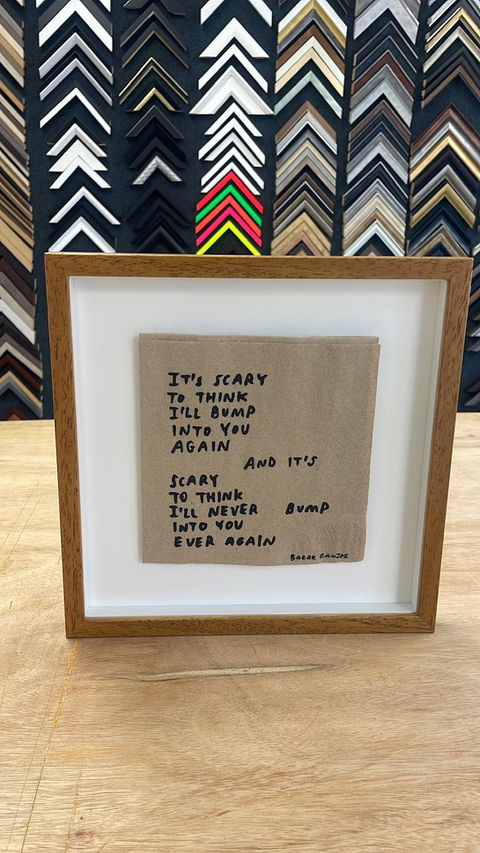 IT'S SCARY
TO THINK
I'LL BUMP
INTO YOU
AGAIN
AND IT'S
SCARY
TO THINK
I'LL NEVER BUMP
INTO YOU
EVER AGAIN
BABAK GANJEI